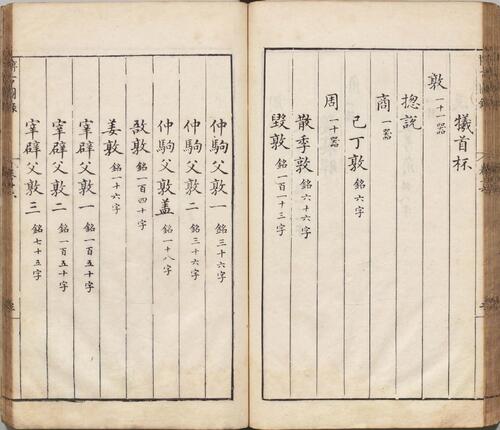 犧首杯
敦 一十一器
揔說
商 一器
已丁敦 銘六字
周 一十器
散季敦 銘六十六字
毀敦 銘一百一十三字
仲駒父敦一 銘三十六字
仲駒父敦二 銘三十六字
仲駒父敦蓋 銘一十八字
敔敦 銘一百四十字
姜敦 銘一十六字
宰辟父敦一 銘一百五十字
宰辟父敦二 銘一百五十字
宰辟父敦三 銘七十五字